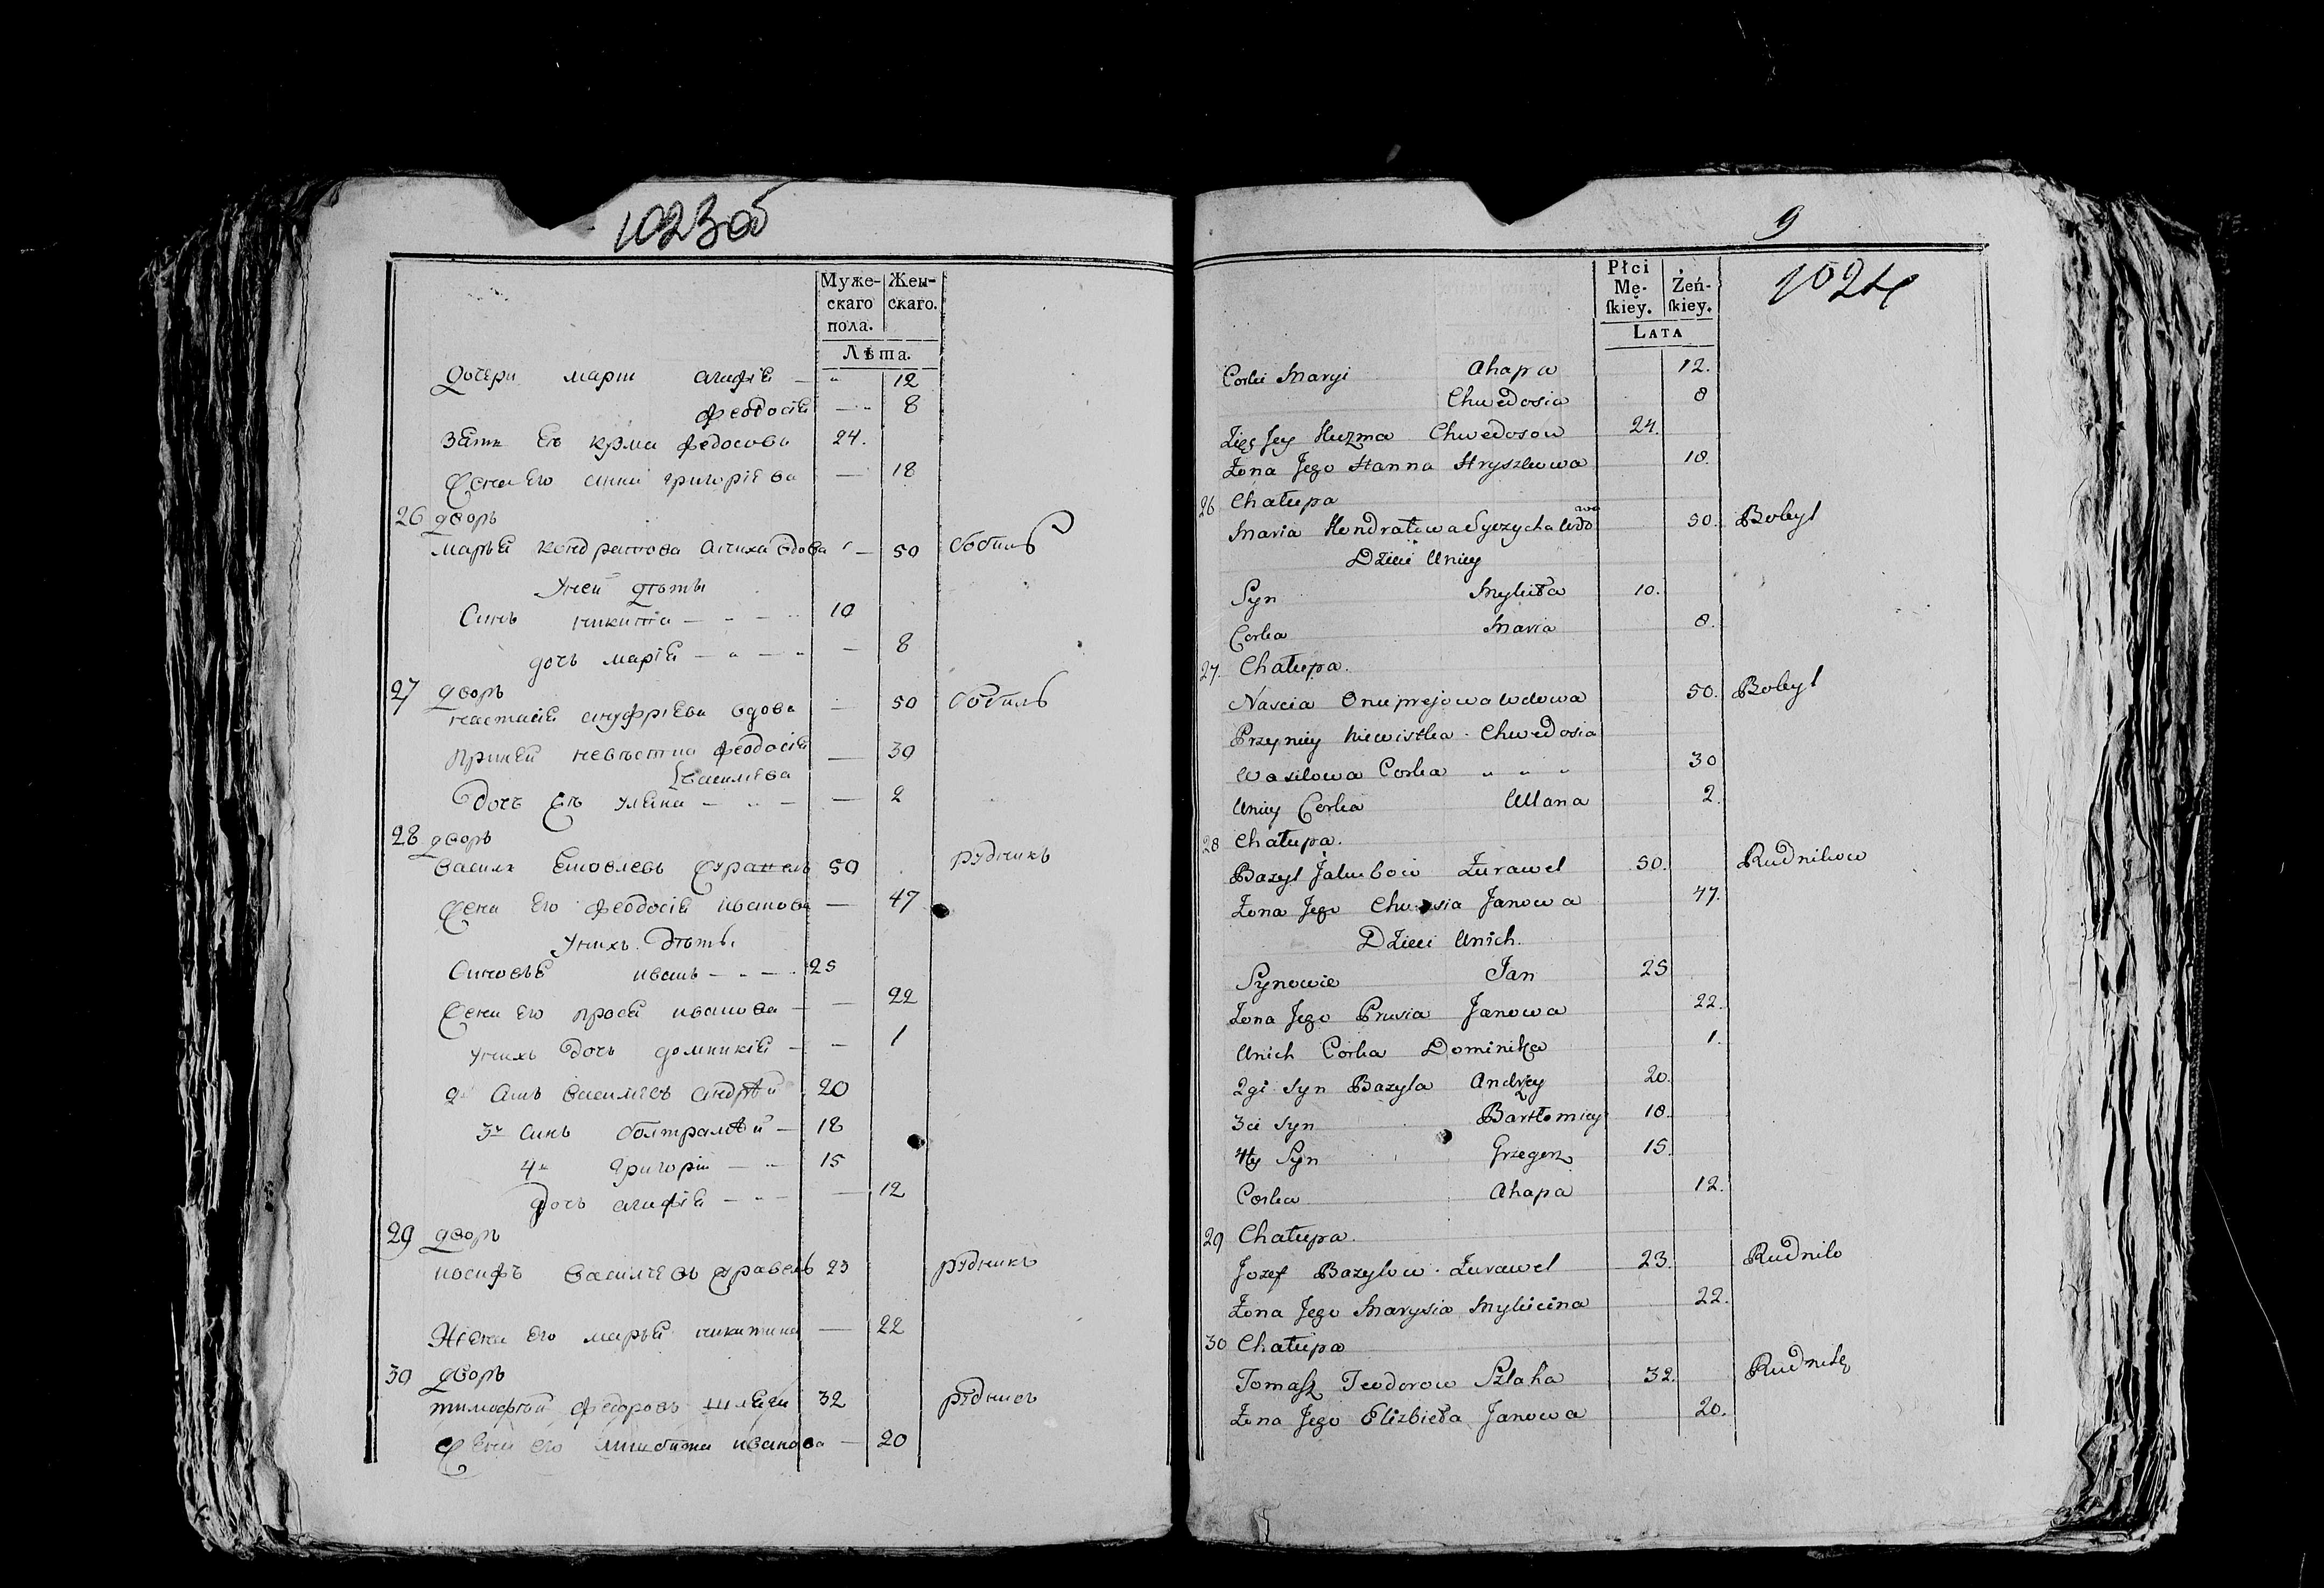 1023об
Муже-
скаго
пола.
Жен-
скаго.
Лѣта.
Дочери марии агафіѧ — " 12
феодосіѧ — " 8
Зять Ее кузма федосовъ 24.
Жена Его анна григоріева — 18
26 дворъ
Марья кондратова вдова — 50 бобыль
У ней дѣти
Синъ никита — " — " 10
дочь маріѧ — " — " — 8
27 дворъ
настасіѧ ануфріева вдова — 50 бобыль
При ней невѣстка феодосіѧ — 30
василева
Дочь Еѣ улѧна — " — — 2
28 дворъ
василь Ѧковлевъ журавель 50 рудникъ
жена Его феодосіѧ иванова — 47
У нихъ дѣти
Синовьѧ иванъ — " — " 25
Жена Его просѧ иванова — — 22
у нихъ дочь доминикіѧ — — 1
2й синъ василѣвъ андрѣй 20
3й синъ болтрамѣй — 18
4й григорій — " 15
дочь агафіѧ — " — — 12
29 дворъ
иосифъ василѣевъ журавель 23 рудникъ
Жена Его марьѧ никитина — 22
30 дворъ
тимофѣй федоровъ шлѧга 32 рудникъ
Жена его иванова — 20
9
1024
Płci
Mę-
ſkiey.
Żeń-
ſkiey.
LATA
Corki Maryi Ahapa 12.
Chwedosia 8
Zięć Jey Kuzma Chwedosow 24.
Żona Jego Hanna Hryszkowa 18.
26 Chałupa
Maria Kondratowa Syczycha Wdo 50. Bobyl
wa
Dzieci Uniey
Syn Mykita 10.
Corka Maria 8.
27. Chałupa.
Nascia Onuprejowa Wdowa 50. Bobyl
Przyniey Niewistka Chwedosia
Wasilowa Corka " " " 30
Uniey Corka Ullana 2.
28 Chałupa.
Bazyl Jakubow Żurawel 50. Rudnikow
Żona Jego Chwesia Janowa 47.
Dzieci Unich.
Synowie Jan 25
Żona Jego Prusia Janowa 22.
Unich Corka Dominika 1.
2gi Syn Bazyla Andrzey 20.
3ci Syn Bartłomiey 18.
4ty Syn Grzegorz 15.
Corka Ahapa 12.
29 Chałupa.
Jozef Bazylow Żurawel 23. Rudnik
Żona Jego Marysia Mykicina 22.
30 Chałupa
Tomasz Teodorow Szlaha 32. Rudnik
Żona Jego Elizbieta Janowa 20.